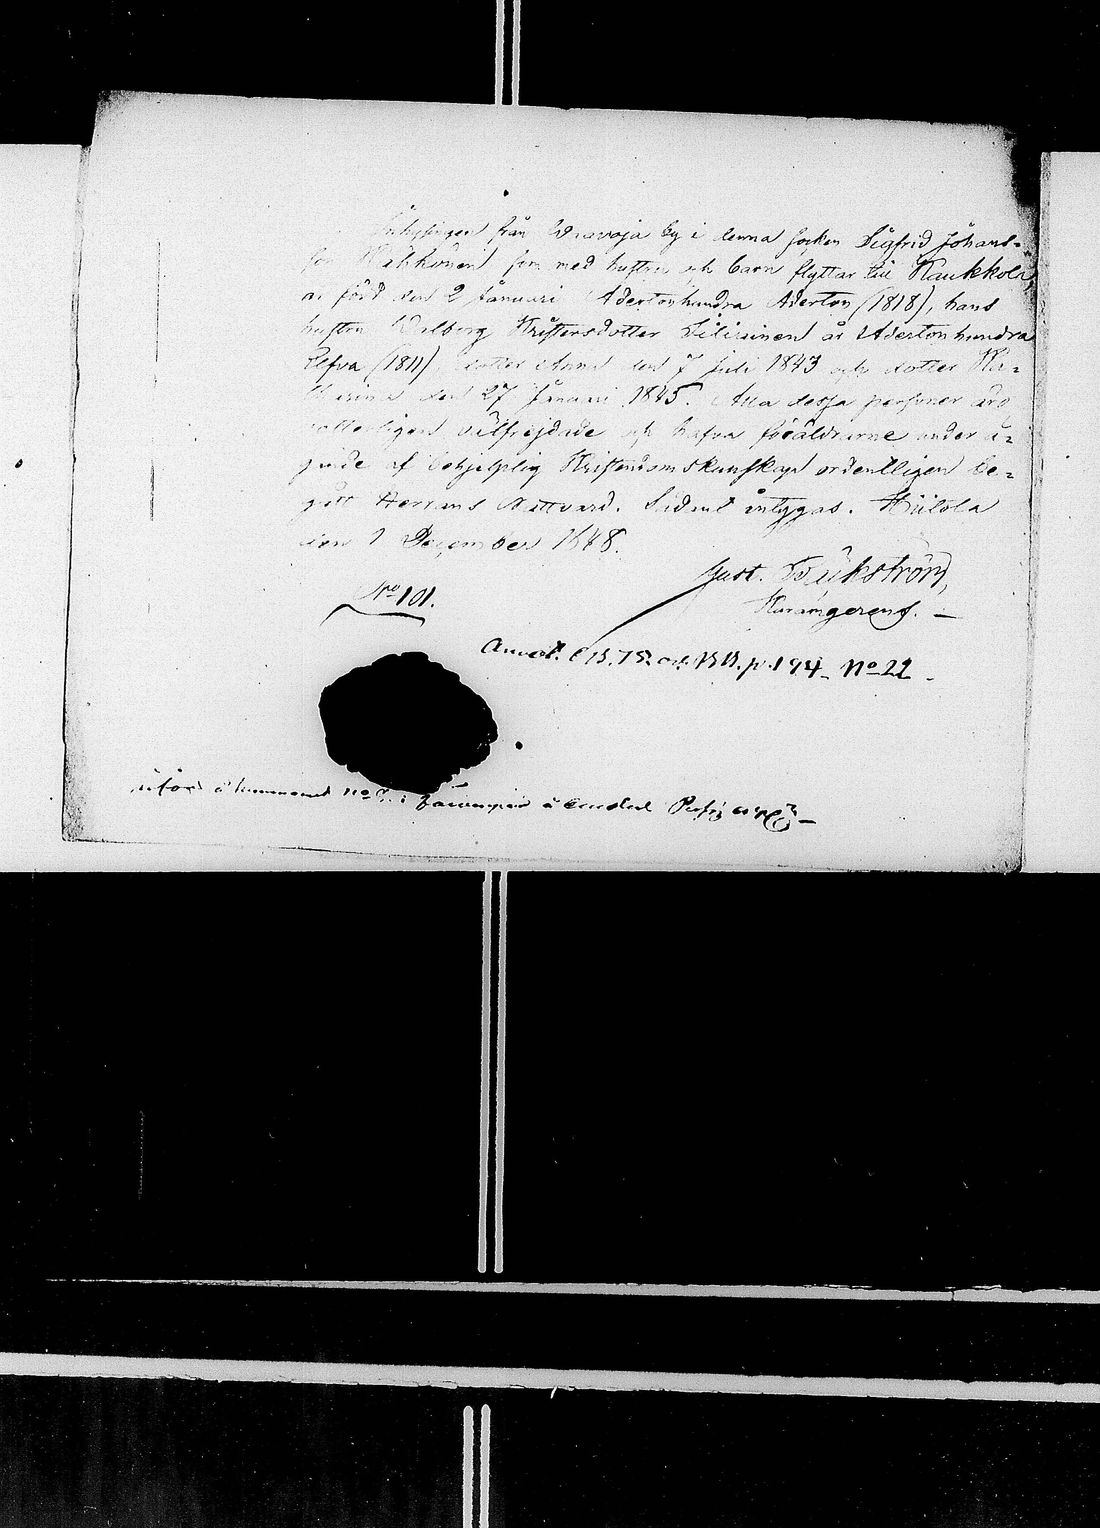 Inhysingen från Wavoja by i denna socken Sigfrid Johans-
son Kähkönen som med hustru och barn flyttar till Kaukkola,
är född den 2 Januari Adertonhundra Aderton (1818), hans
hustru Walborg Kristersdotter Siliainen år Adertonhundra
Elfva (1811), dotter Anna den 7 Juli 1843 och dotter Ka-
tharina den 27 Januari 1845. Alla dessa personer äro
välfrejdade och hafva föräldrarne under å-
gande af behjelplig Kristendomskunskap ordentligen be-
gått Herrans Nattvard. Sådant intygas. Hiitola
den 1 December 1848.
Gust.
No 101.
Anvist. p. 194. No 22.
införd å hemmanet No